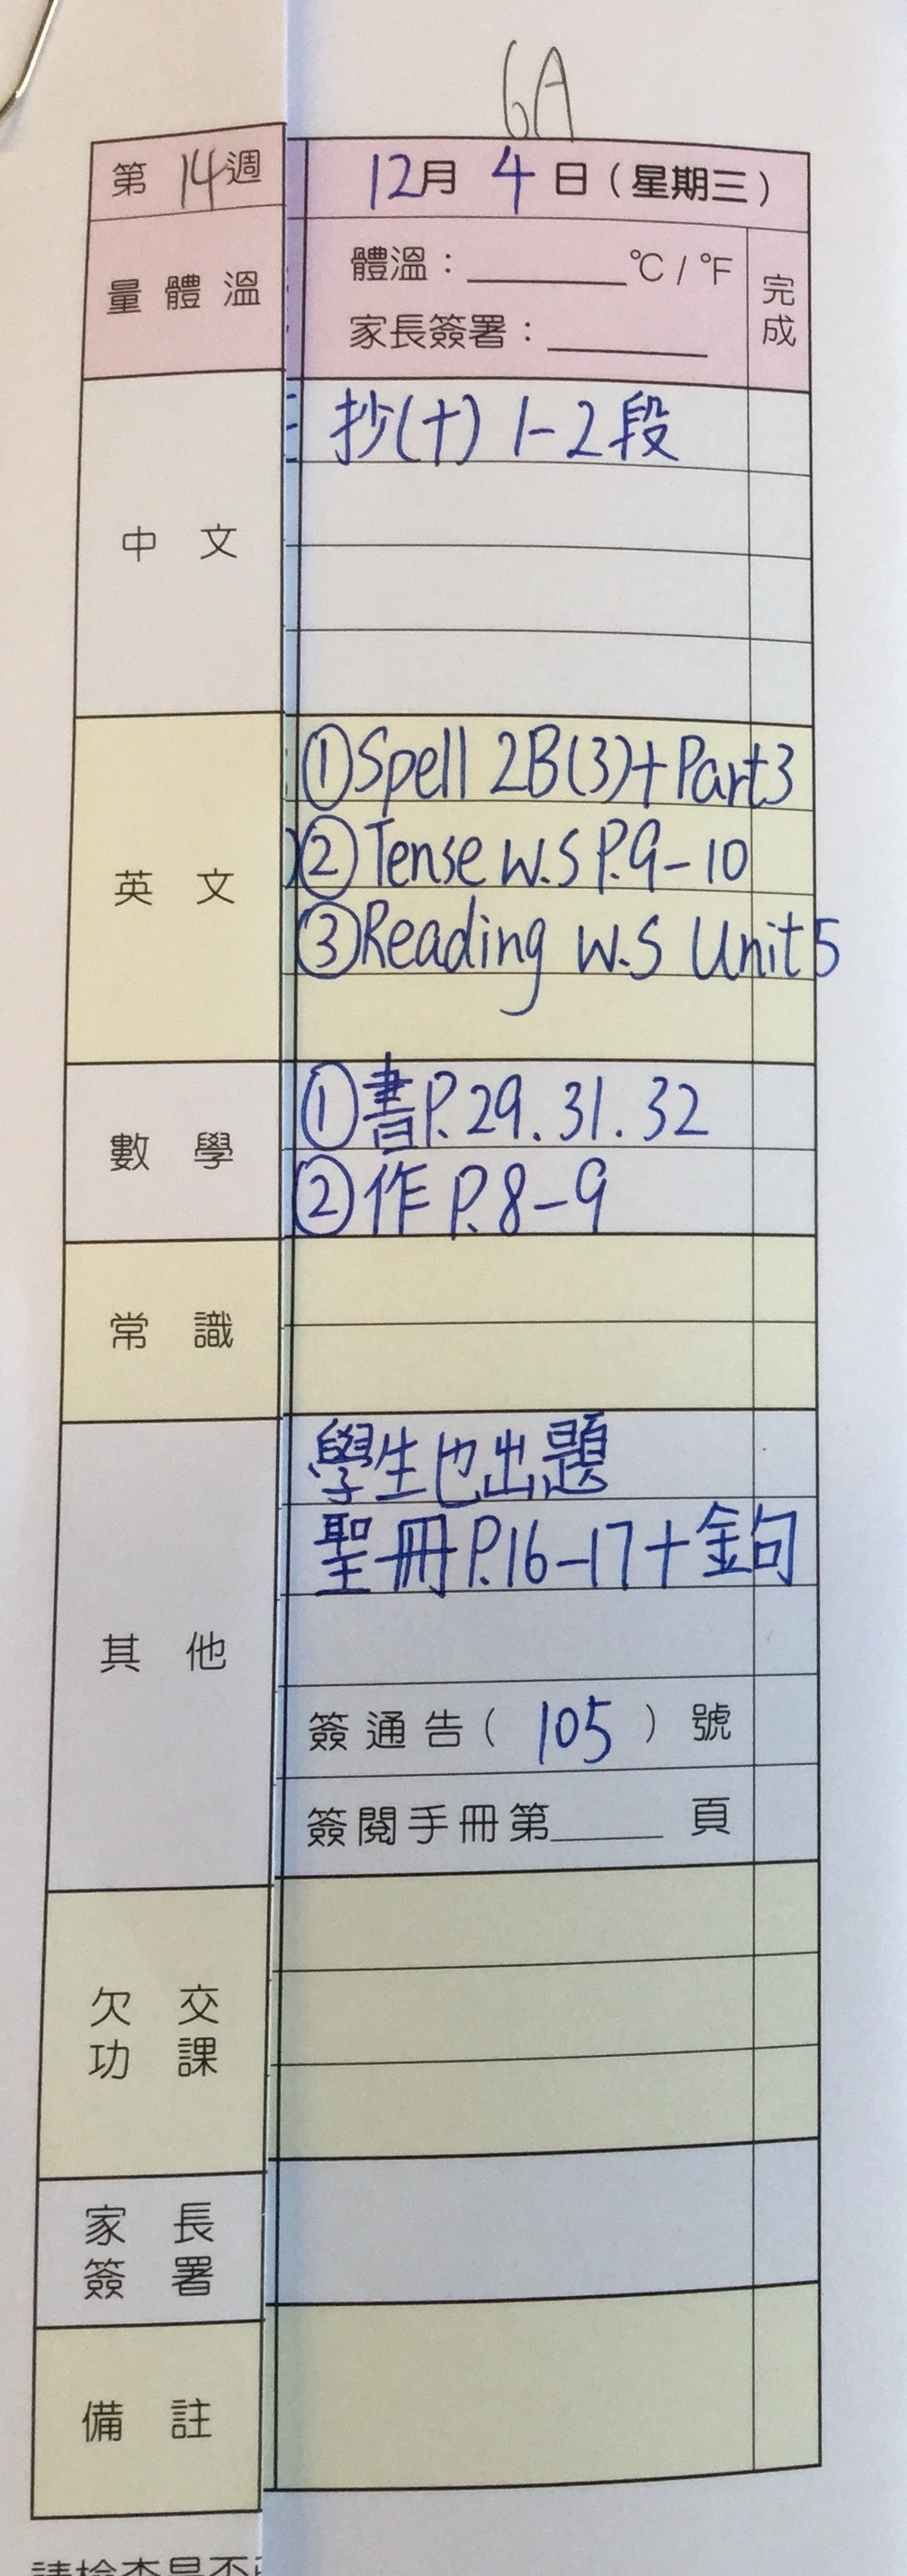 6A
第 14 週
12月 4 日(星期三)
量體溫
體溫:______°C / °F
家長簽署:______
完成
中文
抄(十) 1-2段
英文
①Spell 2B(3)+Part3
②Tense W.S P.9-10
③Reading W.S Unit5
數學
①書P.29.31.32
②作P.8-9
常識
其他
學生也出題
聖冊P.16-17+金句
簽通告( 105 )號
簽閱手冊第____頁
欠交
功課
家長
簽署
備註
請檢查是否